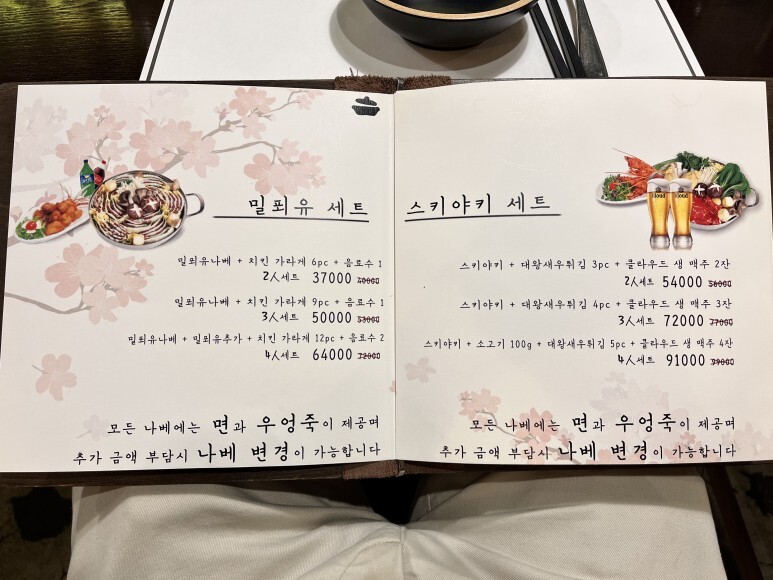 밀푀유 세트
밀푀유나베 + 치킨 가라게 6pc + 음료수 1
2인세트 37000 40000
밀푀유나베 + 치킨 가라게 9pc + 음료수 1
3인세트 50000 53000
밀푀유나베 + 밀푀유추가 + 치킨 가라게 12pc + 음료수 2
4인세트 64000 72000
모든 나베에는 면과 우엉죽이 제공며
추가 금액 부담시 나베 변경이 가능합니다
스키야키 세트
스키야키 + 대왕새우튀김 3pc + 클라우드 생 맥주 2잔
2인세트 54000 56000
스키야키 + 대왕새우튀김 4pc + 클라우드 생 맥주 3잔
3인세트 72000 77000
스키야키 + 소고기 100g + 대왕새우튀김 5pc + 클라우드 생 맥주 4잔
4인세트 91000 99000
모든 나베에는 면과 우엉죽이 제공며
추가 금액 부담시 나베 변경이 가능합니다